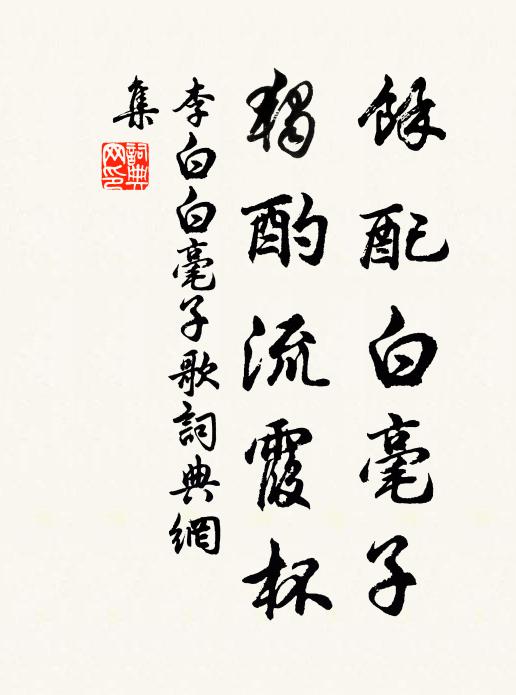 餘配白毫子
獨酌流霞杯
李白白毫子歌詞典網
集
詞典网印